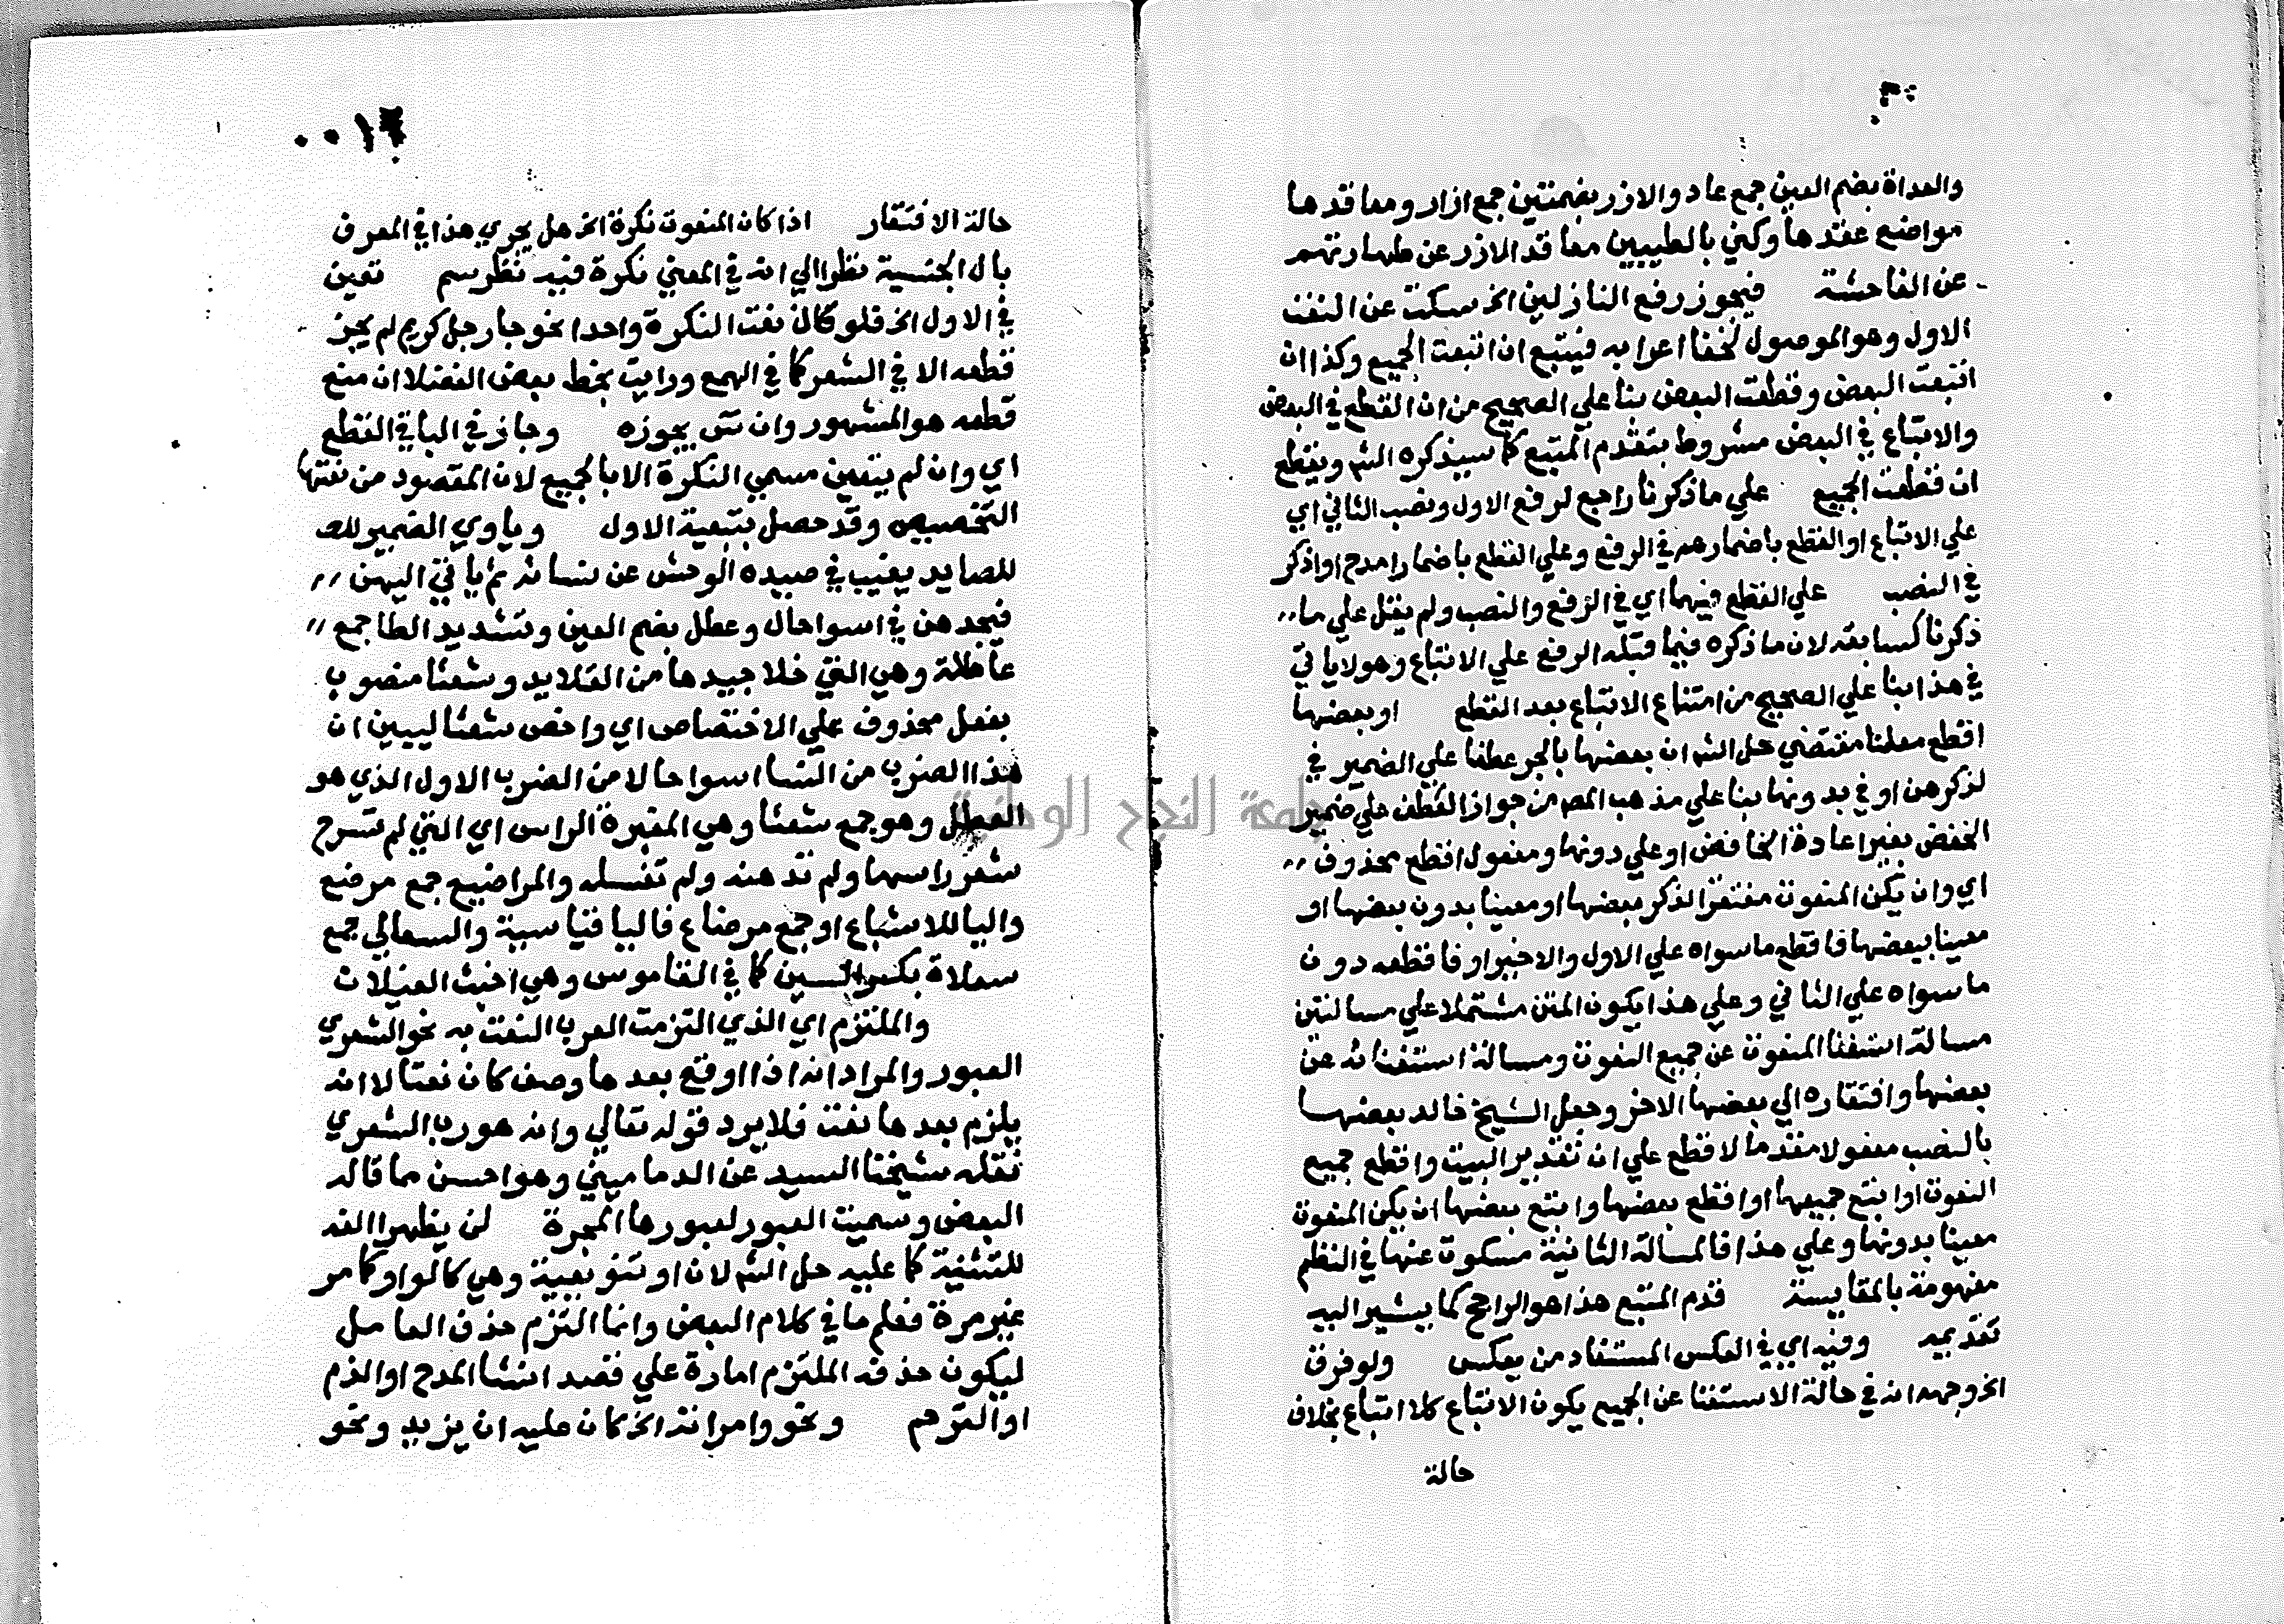 والعداة بضم العين جمع عاد والازر بضمتين جمع ازار ومعاقدها
مواضع عقدها وكني بالطيبين معاقد الازر عن طهارتهم
عن الفاحشة فيجوز رفع النازلين الخ سكت عن النعت
الاول وهو الموصول لخفا اعرابه فيتبع ان اتبعت الجميع وكذا ان
اتبعت البعض وقطعت البعض بنا علي الصحيح من ان القطع في البعض
والاتباع في البعض مشروط بتقدم المتبع كما سيذكره الشم ويقطع
ان قطعت الجميع علي ما ذكرنا راجع لرفع الاول ونصب الثاني اي
علي الاتباع او القطع باضمارهم في الرفع وعلي القطع باضمار امدح او اذكر
في النصب علي القطع فيهما اي في الرفع والنصب ولم يقل علي ما
ذكرنا كسابقه لان ما ذكره فيما قبله الرفع علي الاتباع وهو لا ياتي
في هذا بنا علي الصحيح من امتناع الاتباع بعد القطع او بعضها
اقطع معلنا مقتضي حل الشم ان بعضها بالجر عطفا علي الضمير في
لذكرهن او في بدونها بنا علي مذهب المصم من جواز العطف علي ضمير
الخفض بغير اعادة الخافض او علي دونها ومفعول اقطع محذوف
اي وان يكن المنعوت مفتقرا لذكر بعضها او معينا بدون بعضها او
معينا ببعضها فاقطع ما سواه علي الاول والاخير او فاقطعه دون
ما سواه علي الثاني وعلي هذا يكون المتن مشتملا علي مسالتين
مسالة استغنا المنعوت عن جميع النعوت ومسالة استغنائه عن
بعضها وافتقاره الي بعضها الاخر وجعل الشيخ خالد بعضها
بالنصب مفعولا مقدما لاقطع علي ان تقدير البيت واقطع جميع
النعوت او اتبع جميعها او اقطع بعضها واتبع بعضها ان يكن المنعوت
معينا بدونها وعلي هذا فالمسالة الثانية مسكوت عنها في النظم
مفهومة بالمقايسة قدم المتبع هذا هو الراجح كما يشير اليه
تقديمه وفيه اي في العكس المستفاد من يعكس ولو فرق
الخ وجهه انه في حالة الاستغنا عن الجميع يكون الاتباع كلا اتباع بخلاف
حالة
حالة الافتقار اذا كان المنعوت نكرة الخ هل يجري هذا في المعرف
بال الجنسية نظرا الي انه في المعني نكرة فيه نظر سم تعين
في الاول الخ فلو كان نعت النكرة واحدا نحو جا رجل كريم لم يجز
قطعه الا في الشعر كما في الهمع ورايت بخط بعض الفضلا ان منع
قطعه هو المشهور وان س يجوزه وجاز في الباقي القطع
اي وان لم يتعين مسمي النكرة الا بالجميع لان المقصود من نعتها
التخصيص وقد حصل بتبعية الاول وياوي الضمير للص
للصايد يغيب في صيده الوحش عن نسائه ثم ياتي اليهن
فيجدهن في اسوا حال وعطل بضم العين وتشديد الطا جمع
عاطلة وهي التي خلا جيدها من القلايد وشعثا منصوب
بفعل محذوف علي الاختصاص اي واخص شعثا ليبين ان
هذا الضرب من النسا اسوا حالا من الضرب الاول الذي هو
العطل وهو جمع شعثا وهي المغبرة الراس اي التي لم تسرح
شعر راسها ولم تدهنه ولم تغسله والمراضيع جمع مرضع
واليا للاشباع او جمع مرضاع فاليا قياسية والسعالي جمع
سعلاة بكسر السين كما في القاموس وهي اخبث الغيلات
والملتزم اي الذي التزمت العرب النعت به نحو الشعري
العبور والمراد انه اذا اوقع بعدها وصف كان نعتا لا انه
يلزم بعدها نعت فلا يرد قوله تعالي وانه هو رب الشعري
نقله شيخنا السيد عن الدماميني وهو احسن مما قاله
البعض وسميت العبور لعبورها المجرة لن يظهرا الفه
للتثنية كما عليه حل الشم لان او تنويعية وهي كالواو كما مر
غير مرة فعلم ما في كلام البعض وانما التزم حذف العامل
ليكون حذفه الملتزم امارة علي قصد انشا المدح او الذم
او الترحم ونحو وامراته الخ كان عليه ان يزيد ونحو
جامعة النجاح الوطنية